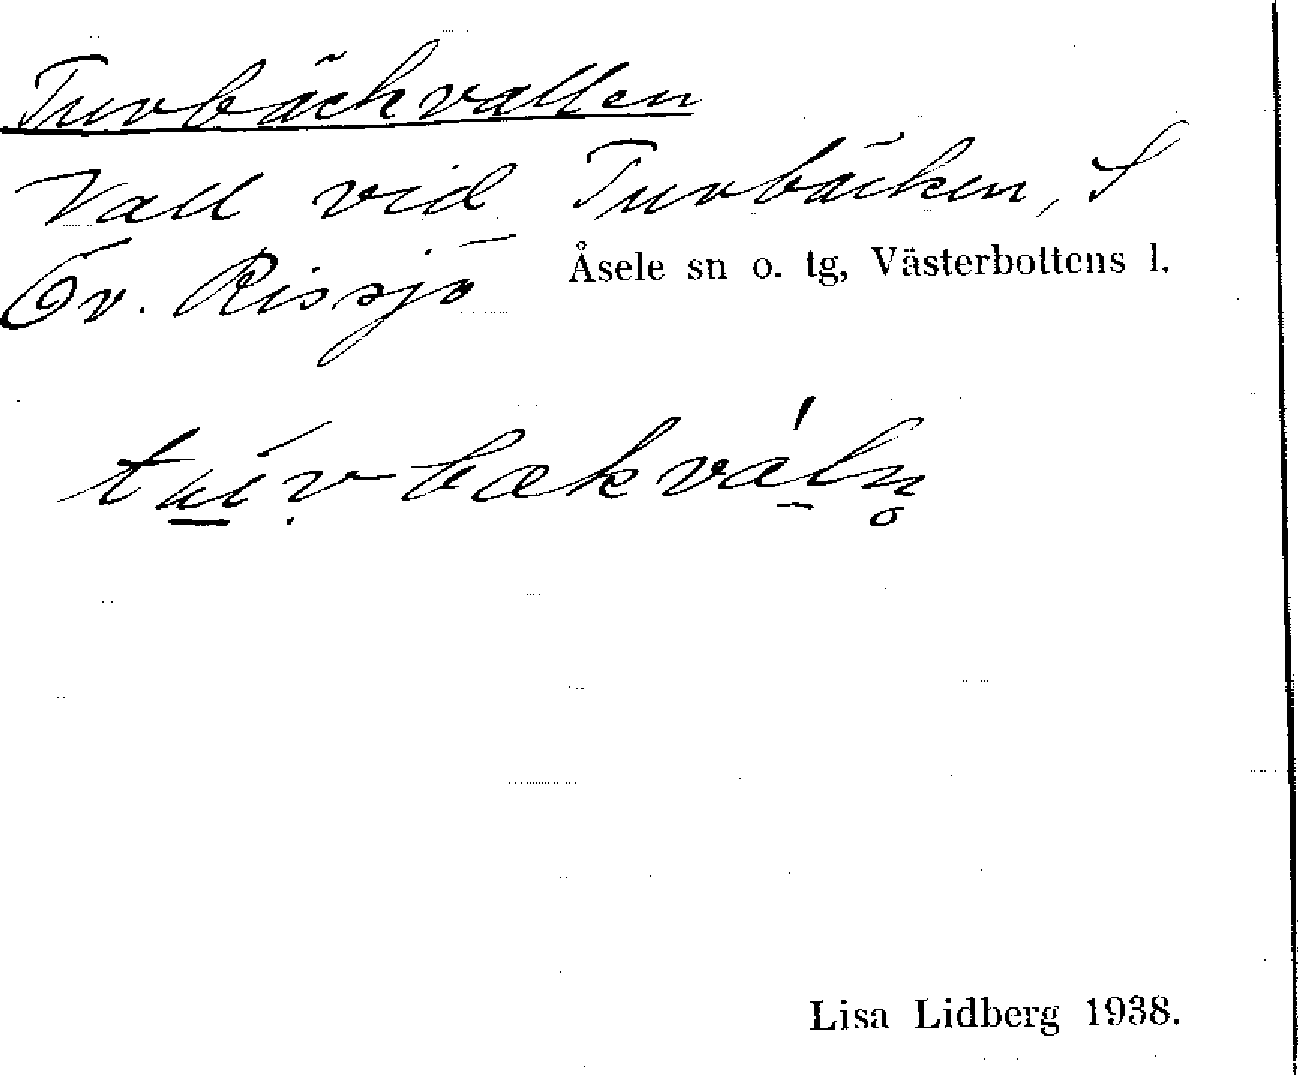 Tuvbäckvallen
Vall vid Tuvbäcken, S
Öv. Rissjö Åsele sn o. tg, Västerbottens l.
Lisa Lidberg 1938.